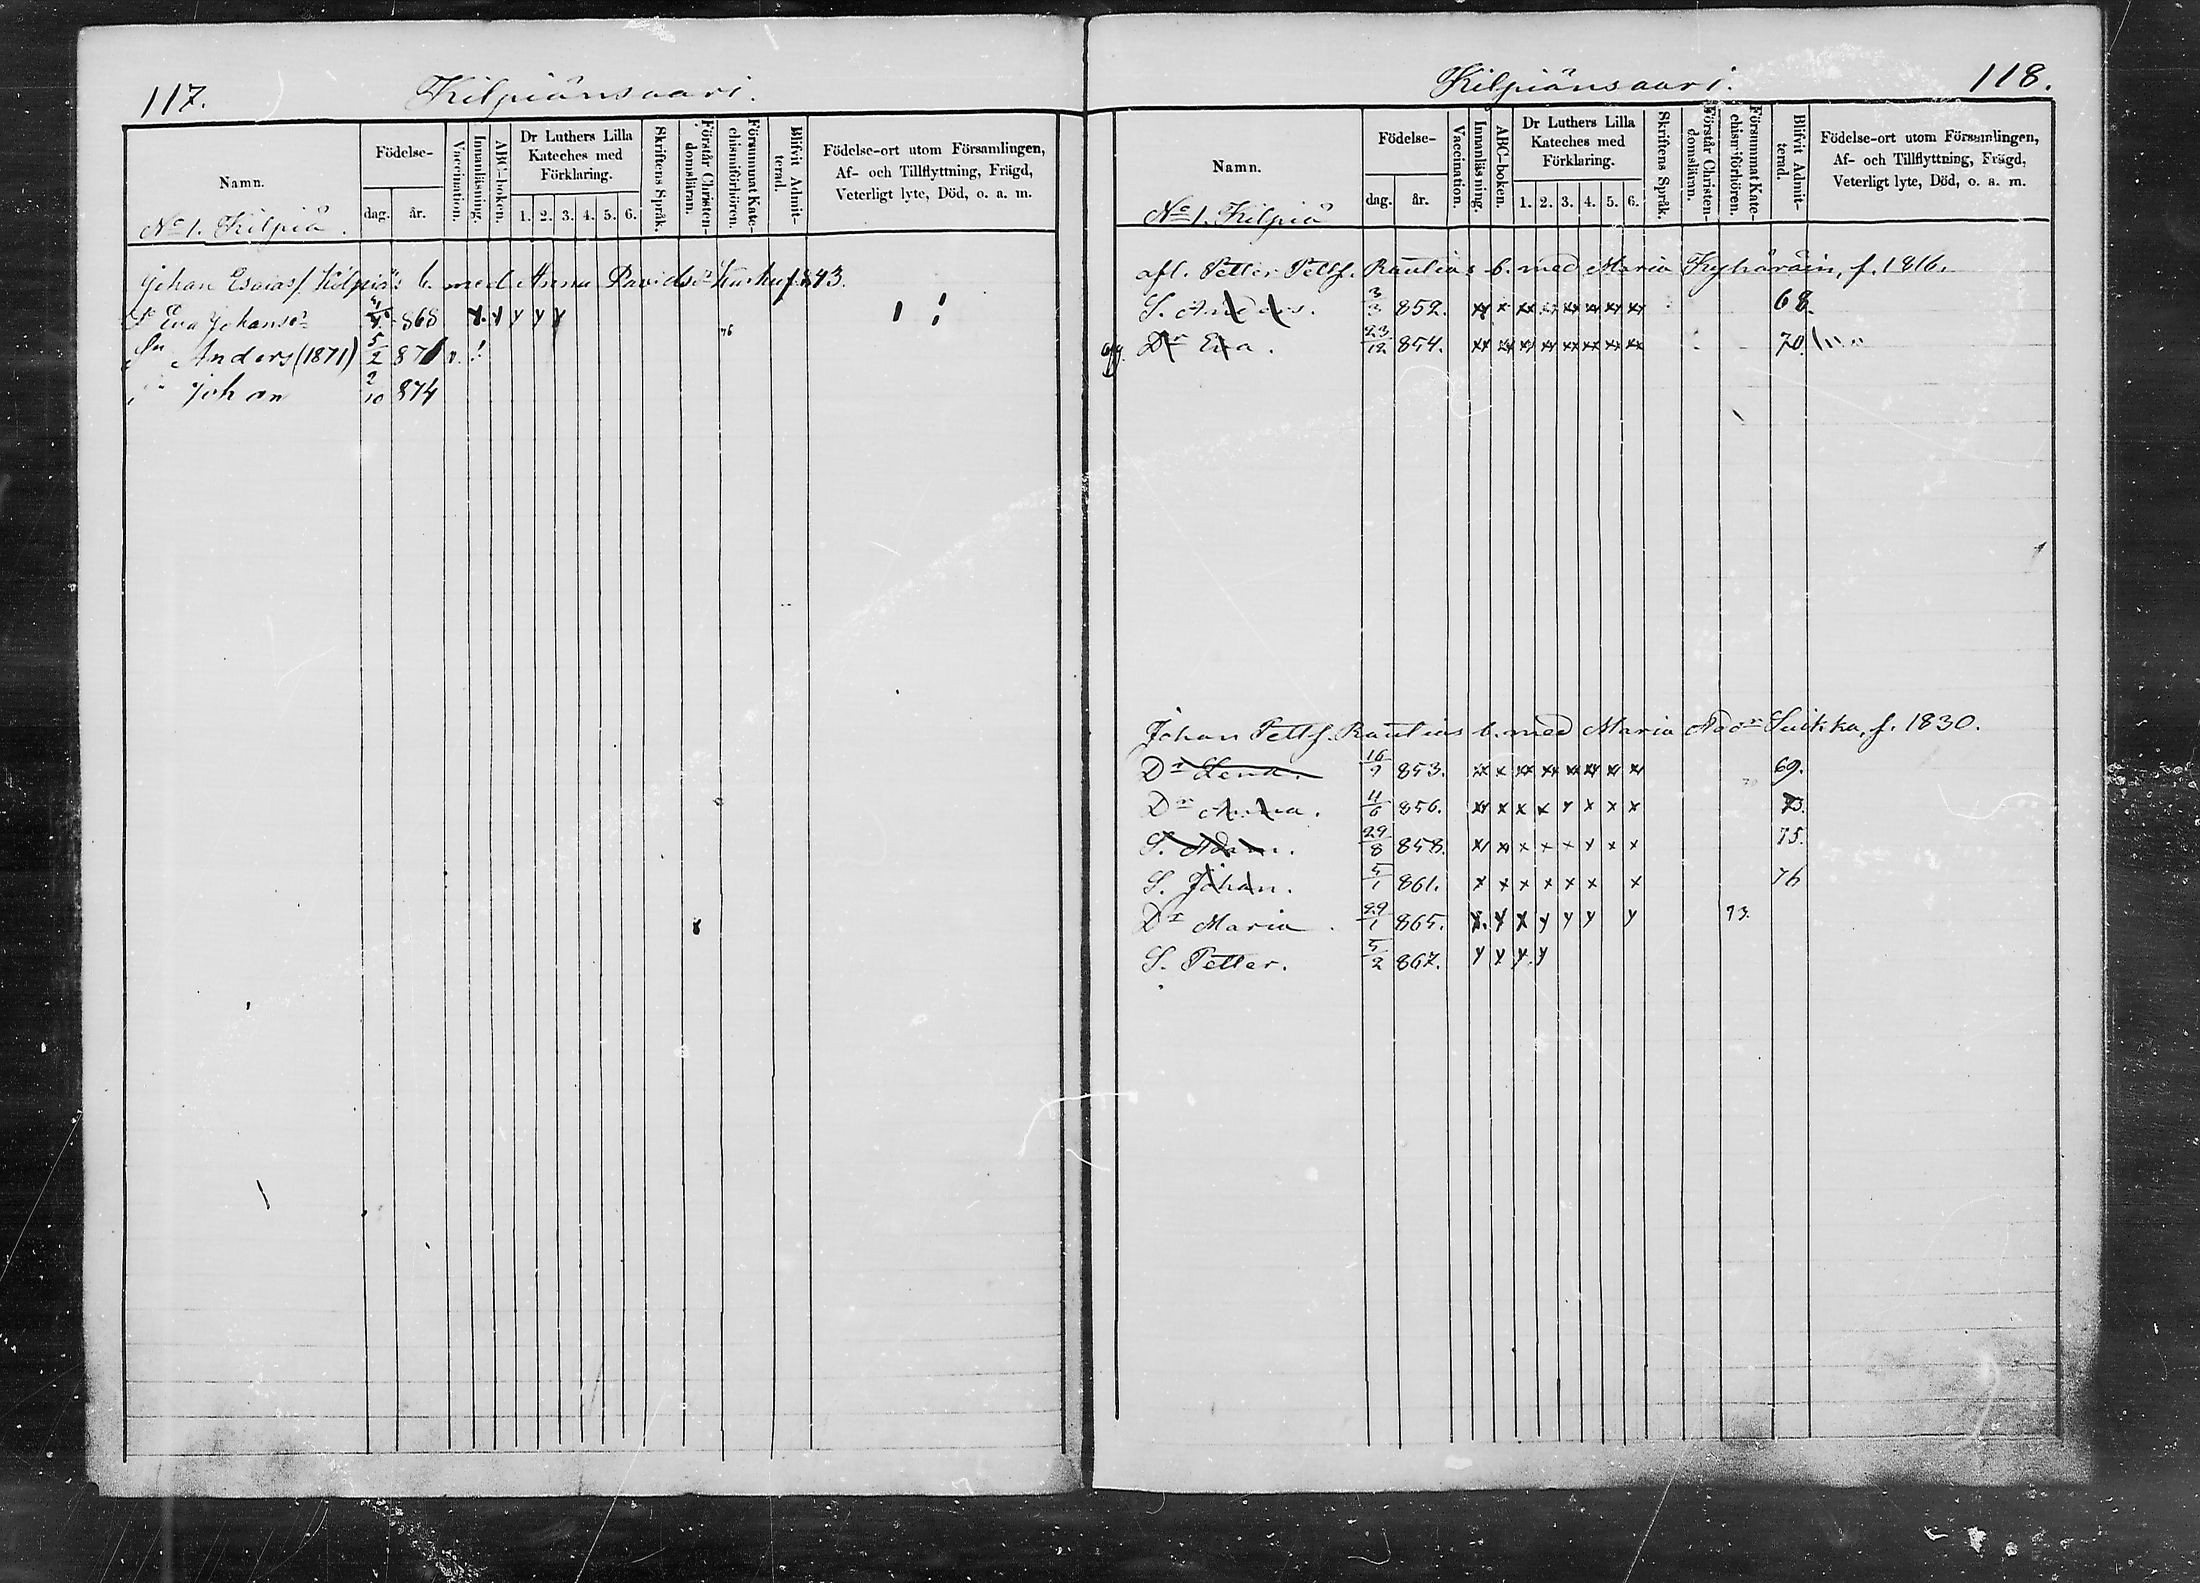 117.
Kilpiänsaari.
Namn.
Födelse-
dag.
år.
Vaccination.
Innanläsning.
ABC-boken.
Dr Luthers Lilla
Kateches med
Förklaring.
1. 2. 3. 4. 5. 6.
Skriftens Språk.
Förstår Christen-
domsläran.
Försummat Kate-
chismiförhören.
Blifvit Admit-
terad.
Födelse-ort utom Församlingen,
Af- och Tillflyttning, Frägd,
Veterligt lyte, Död, o. a. m.
No 1. Kilpiä.
Johan Esaiasf. Kilpiäs b. med Anna Davidsdr f. 843.
Eva Johansdr 868 x. y y y y
76
Anders (1871) 5/2 871 v.
Johan 2/10 874
118.
Kilpiänsaari.
Namn.
Födelse-
dag.
år.
Vaccination.
Innanläsning.
ABC-boken.
Dr Luthers Lilla
Kateches med
Förklaring.
1. 2. 3. 4. 5. 6.
Skriftens Språk.
Förstår Christen-
domsläran.
Försummat Kate-
chismiförhören.
Blifvit Admit-
terad.
Födelse-ort utom Församlingen,
Af- och Tillflyttning, Frägd,
Veterligt lyte, Död, o. a. m.
No 1. Kilpiä
afl. Petter Pettf. Rautias b. med Maria f. 1816.
S. Anders. 3/3 852. xx x xx xx xx xx xx xx 68.
Dr Eva. 23/12 854. xx xx xx xx xx xx xx xx 70.
Johan Pettf. Rautias b. med Maria Suikka, f. 1830.
Dr Lena. 16/9 853. xx x xx xx xx xx xx xx 69.
Dr Anna. 11/6 856. xx x x x y x x x 73.
S. Adam. 29/8 858. xx xx x x x x x x 75.
S. Johan. 5/1 861. x x x x x x x 76
Dr Maria. 29/1 865. x. y x y y y y 73.
S. Petter. 5/2 867. y y y y